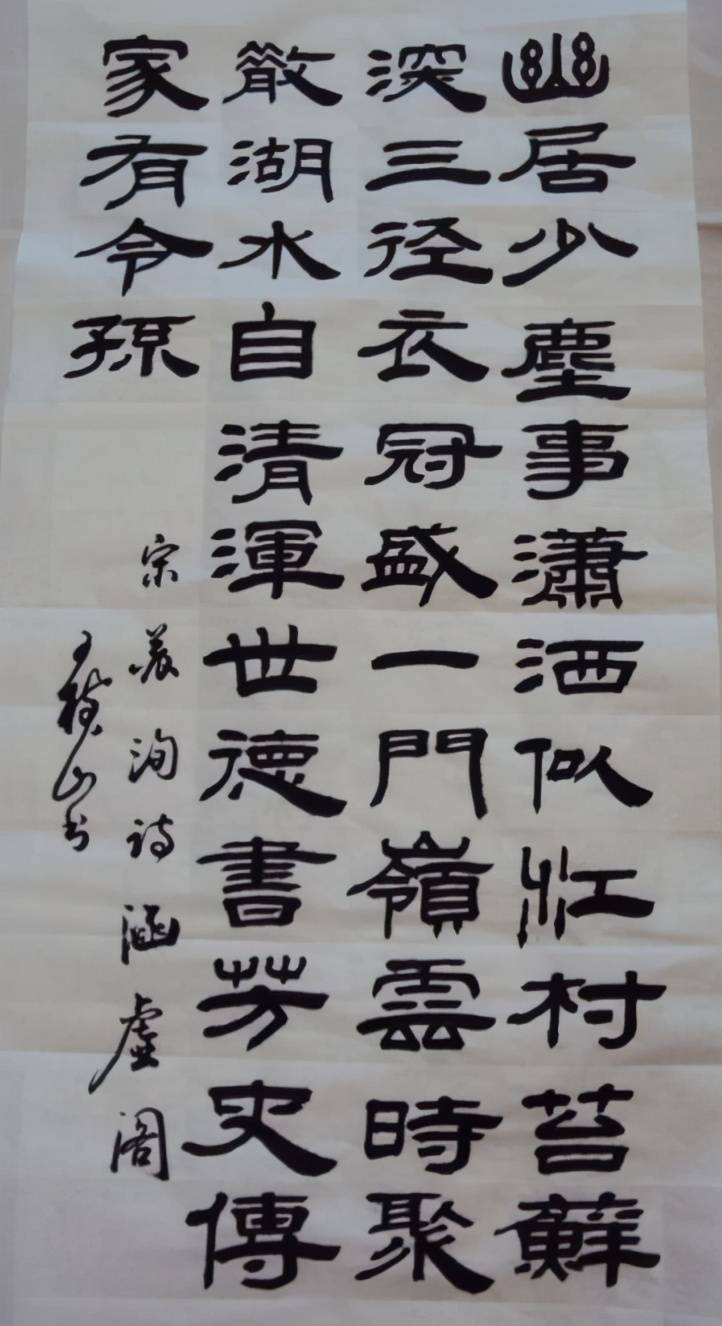 幽居少塵事瀟洒似江村苔蘚
深三径衣冠盛一門嶺雲時聚
散湖水自清渾世德書芳史傳
家有令孫
宋姜洵诗涵虚阁
山书